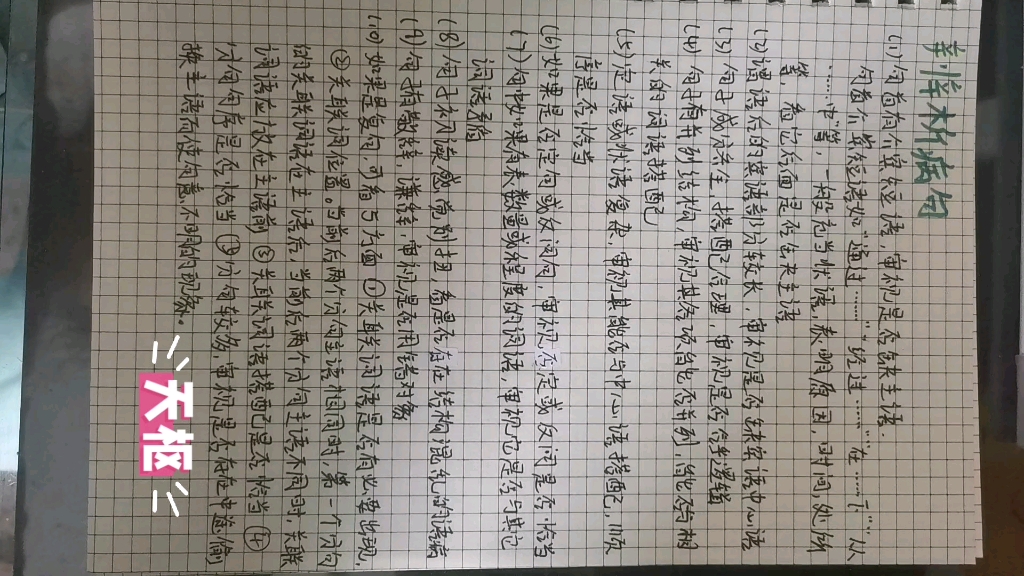 辨析病句
(1) 句首有介宾短语,审视是否缺主语.
句首介宾短语如"通过……""经过……""在……下""从
……中"等,一般充当状语,表明原因,时间,处所
等,看它后面是否缺失主语
(2) 谓语后的宾语部分较长,审视是否缺宾语中心语
(3) 句子成分产生搭配合理,审视是否合乎逻辑
(4) 句中有并列结构,审视其各项能否并列,能否与相
关的词语搭配
(5) 定语或状语复杂,审视其能否与中心语搭配,顺
序是否恰当
(6) 如果是否定句或反问句,审视否定或反问是否恰当
(7) 句中如果有表数量或程度的词语,审视它是否与其它
词语矛盾
(8) 句子不同读感觉别扭,看是否存在结构混乱的语病
(9) 句指散关,谦敬,审视是否用错对象
(10) 如果是复句,可看5方面 ①关联词语是否有必要出现,
②关联词位置。当前后两个分句主语相同时,第一个分句
的关联词语在主语后,当前后两个分句主语不同时,关联
词语应放在主语前 ③关联词语搭配是否恰当 ④
分句句序是否恰当 ⑤分句较多,审视是否存在中途偷
换主语而使句意不明的现象.
天枢